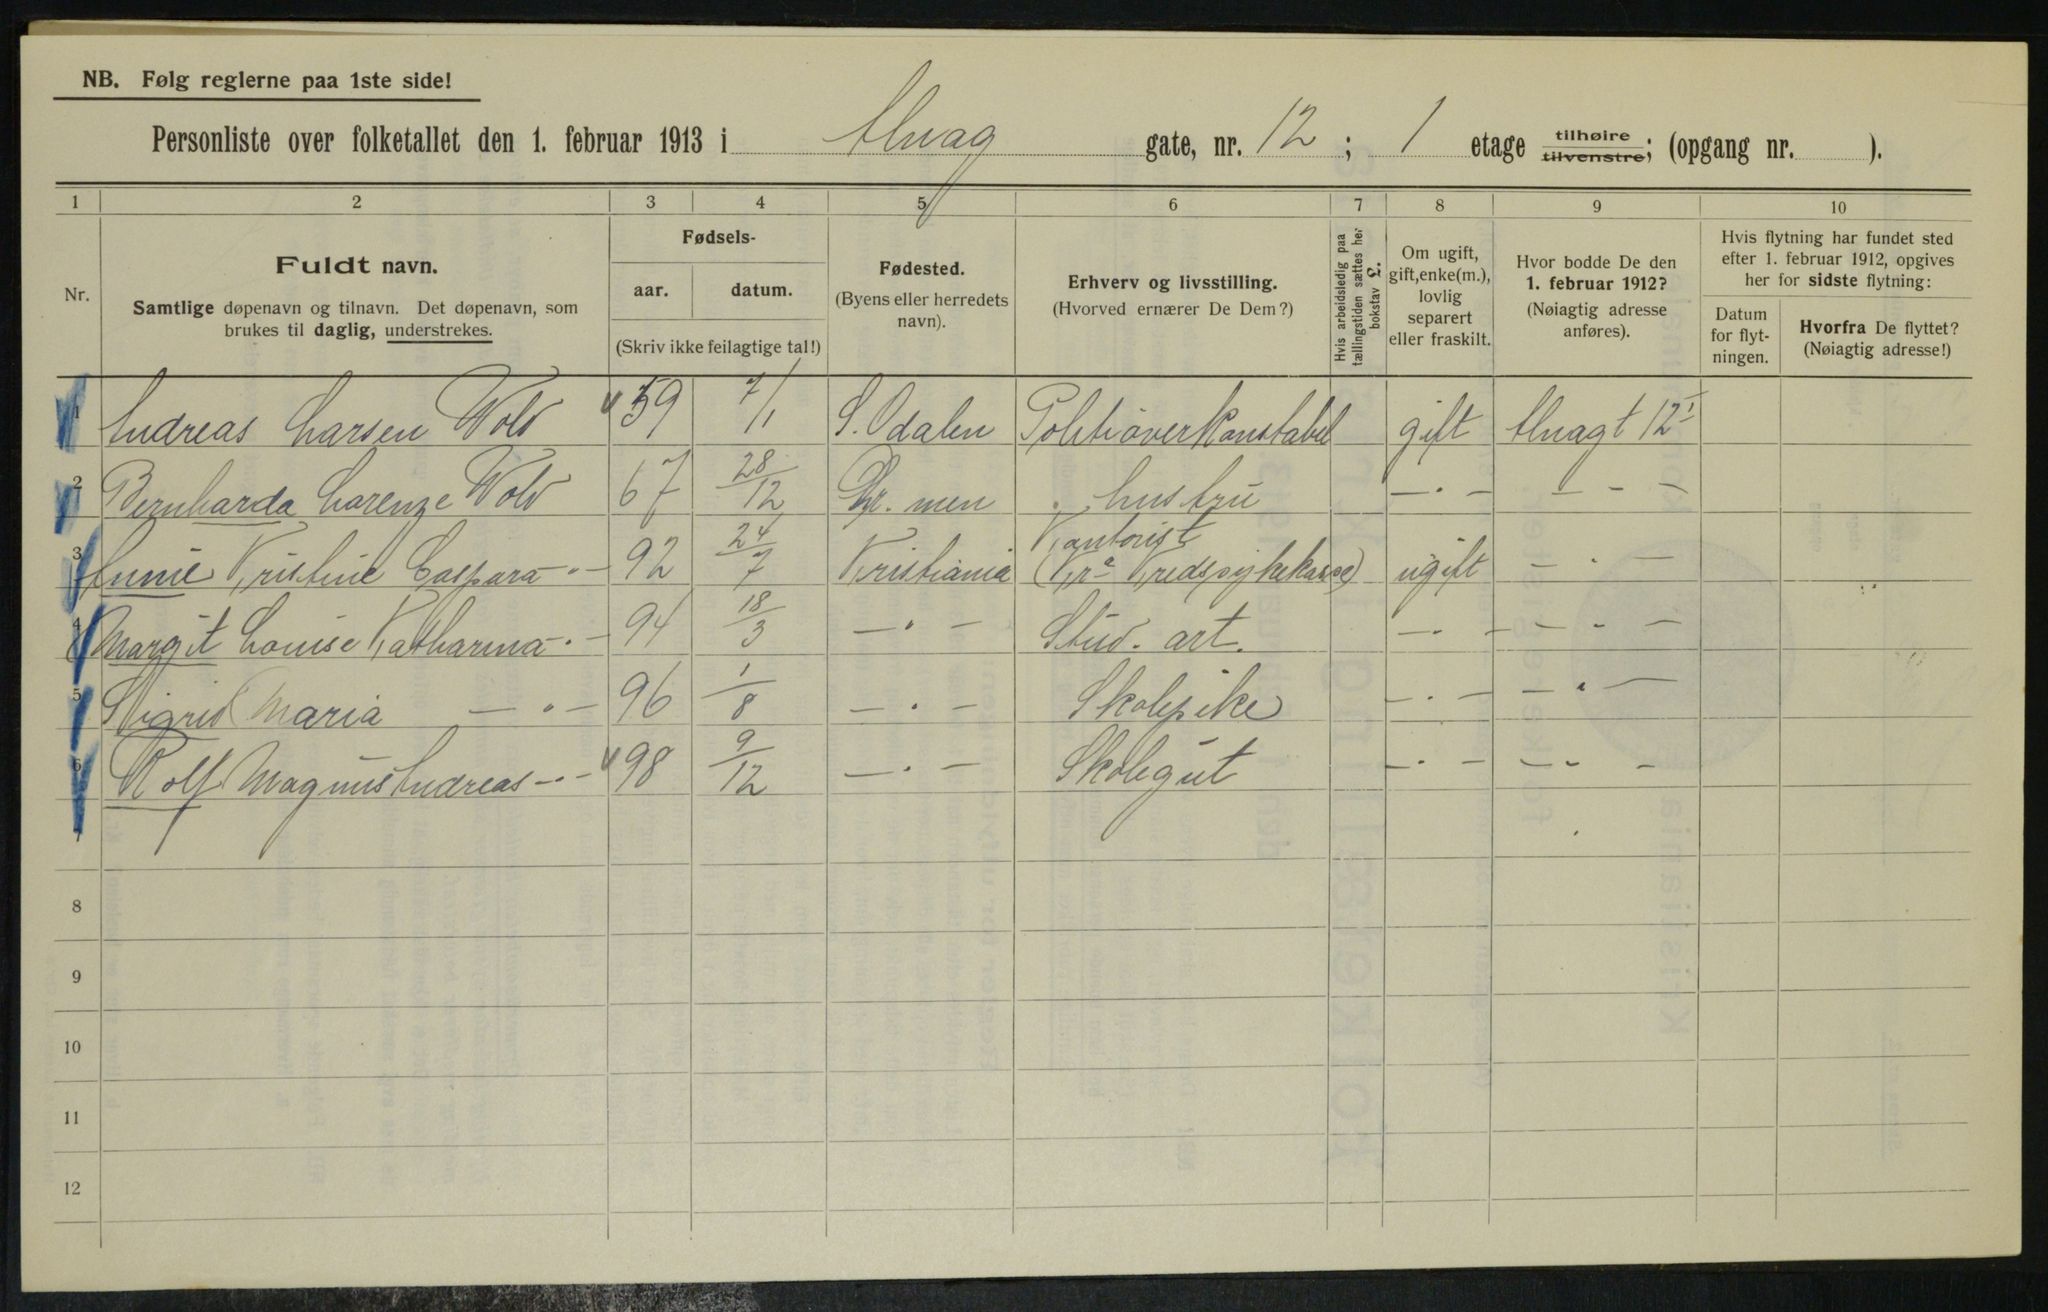 NB. Følg reglerne paa 1ste side!
Personliste over folketallet den 1. februar 1913 i Alvag gate, nr. 12 ; 1 etage tilhøire tilvenstre; (opgang nr. ).
1 2 3 4 5 6 7 8 9 10
Nr.
Fuldt navn.
Samtlige døpenavn og tilnavn. Det døpenavn, som
brukes til daglig, understrekes.
Fødsels-
aar. datum.
(Skriv ikke feilagtige tal!)
Fødested.
(Byens eller herredets
navn).
Erhverv og livsstilling.
(Hvorved ernærer De Dem?)
Hvis arbeidsledig paa
tællingstiden sættes her
bokstav L.
Om ugift,
gift, enke(m.),
lovlig
separert
eller fraskilt.
Hvor bodde De den
1. februar 1912?
(Nøiagtig adresse
anføres).
Hvis flytning har fundet sted
efter 1. februar 1912, opgives
her for sidste flytning:
Datum
for flyt-
ningen.
Hvorfra De flyttet?
(Nøiagtig adresse!)
1 Andreas Larsen Wold 59 7/1 S. Odalen Politioverkonstabel gift 12 I
2 Bernharda Lorenze Wold 67 28/12 Dr. men hustru — " — — " —
3 Annie Kristine Caspara — " — 92 24/7 Kristiania Kontorist (Kra Kredssykekasse) ugift — " —
4 Margit Louise Katharina — " — 94 18/3 — " — Stud. art. — " — — " —
5 Sigrid Maria — " — 96 1/8 — " — Skolepike — " — — " —
6 Rolf Magnus Andreas — " — 98 9/12 — " — Skolegut — " — — " —
7
8
9
10
11
12